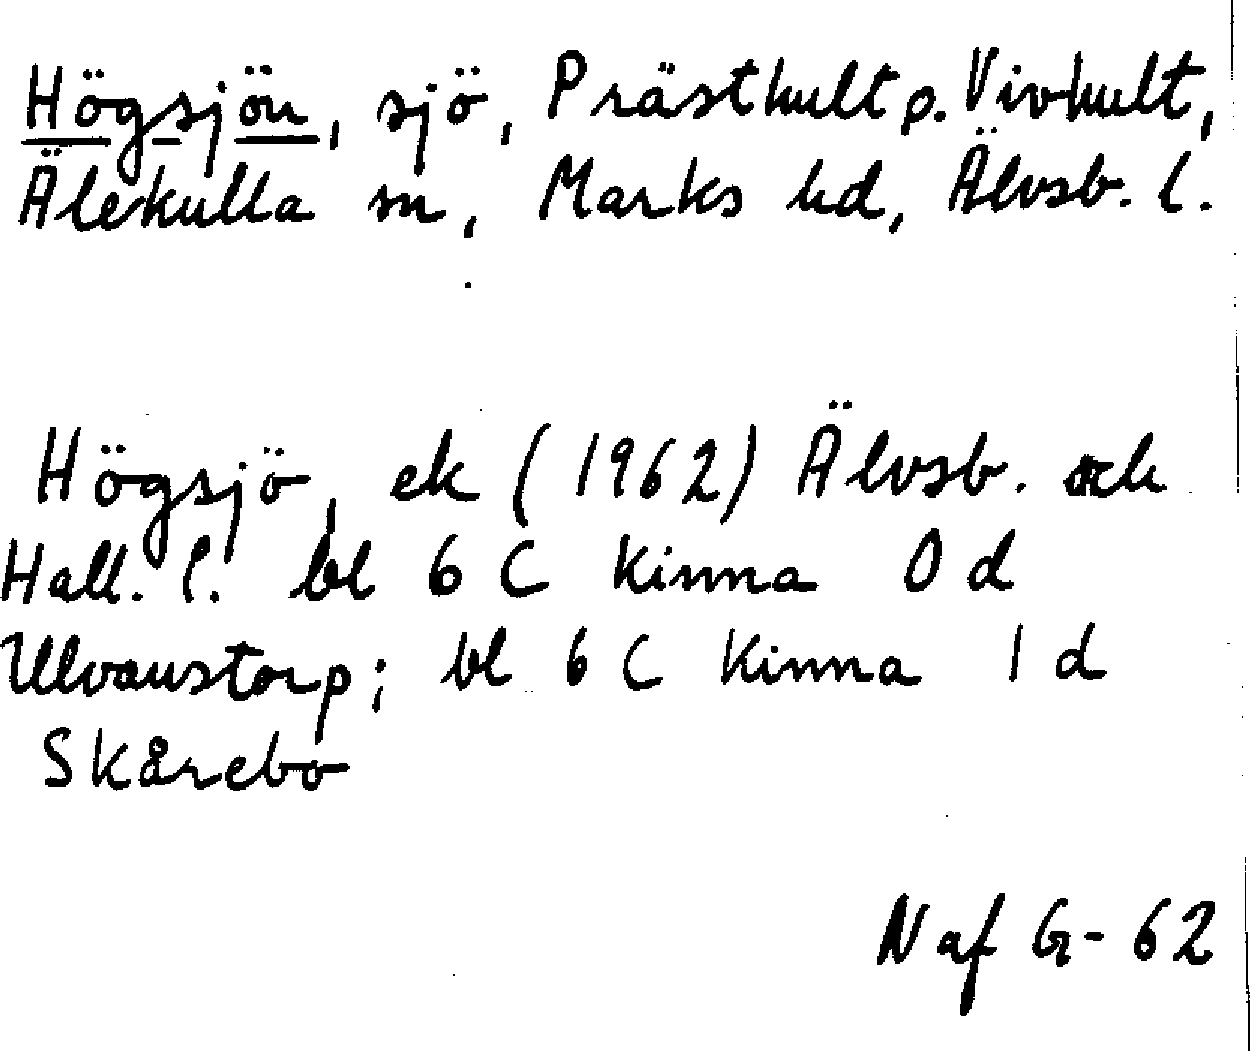 Högsjön, sjö, Prästhult p. Vivhult,
Älekulla sn, Marks hd, Älvsb. l.
Högsjö, ek (1962) Älvsb. och
Hall. l. bl 6 C Kinna 0 d
Ulvanstorp; bl 6 C Kinna 1 d
Skårebo
N af G-62